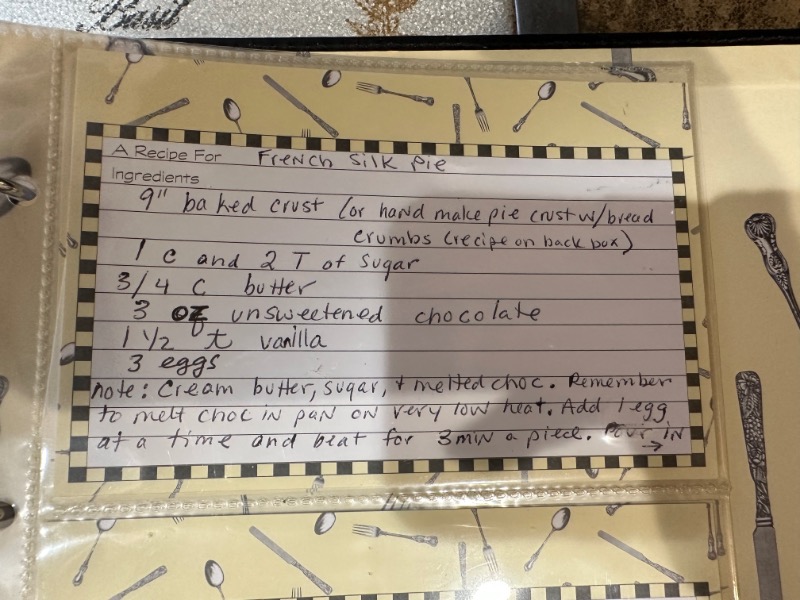 Basil
A Recipe For French Silk Pie
Ingredients
9" baked crust (or hand make pie crust w/bread
crumbs (recipe on back box)
1 c and 2 T of sugar
3/4 c butter
3 oz unsweetened chocolate
1 1/2 t vanilla
3 eggs
note: Cream butter, sugar, + melted choc. Remember
to melt choc in pan on very low heat. Add 1 egg
at a time and beat for 3 min a piece. Pour in
→